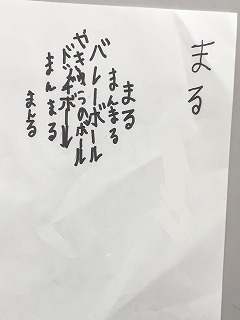 まる
まる
まんまる
バレーボール
やきゅうのボール
ドッヂボール
まんまる
まんる